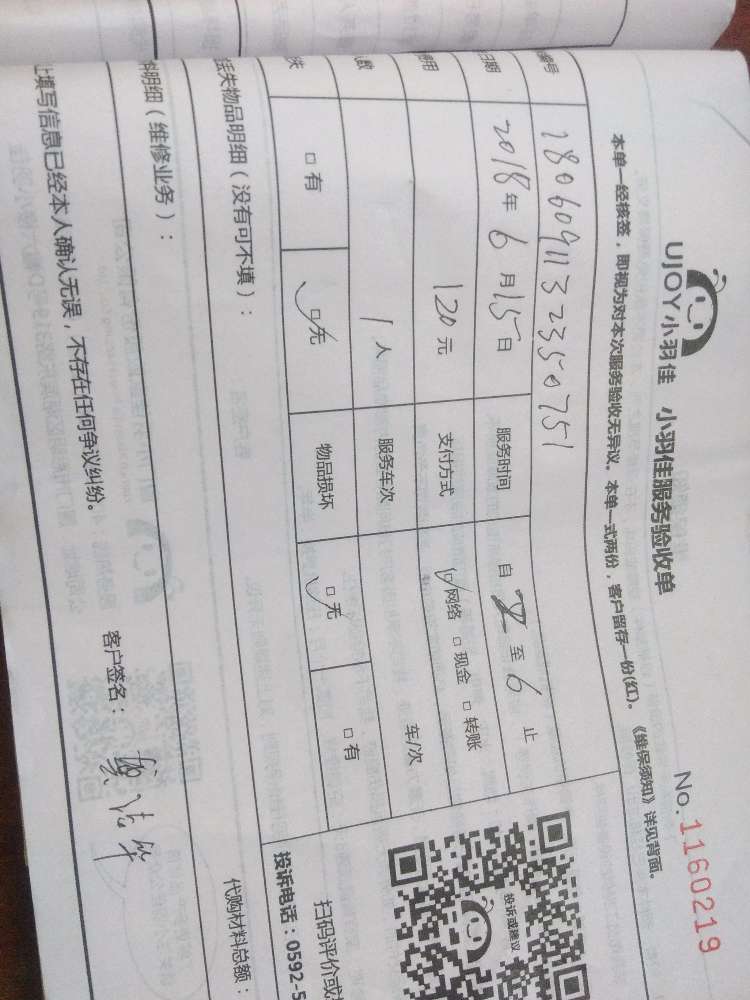 UJOY小羽佳 小羽佳服务验收单
No.1160219
本单一经核签，即视为对本次服务验收无异议。本单一式两份，客户留存一份(红)。《维保须知》详见背面。
编号 1806091132350751
日期 2018年6月15日 服务时间 自 2 至 6 止
费用 120元 支付方式 ☑网络 □现金 □转账
人数 1人 服务车次 车/次
□有 ☑无 物品损坏 ☑无 □有
丢失物品明细（没有可不填）：
明细（维修业务）： 代购材料总额：
填写信息已经本人确认无误，不存在任何争议纠纷。 客户签名：
投诉或建议
扫码评价或
投诉电话：0592-5